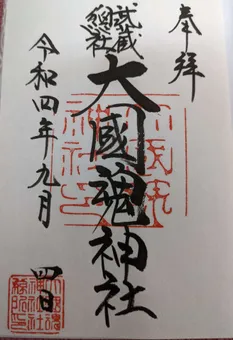 奉拝
武蔵
總社
大國魂神社
令和四年九月 四日